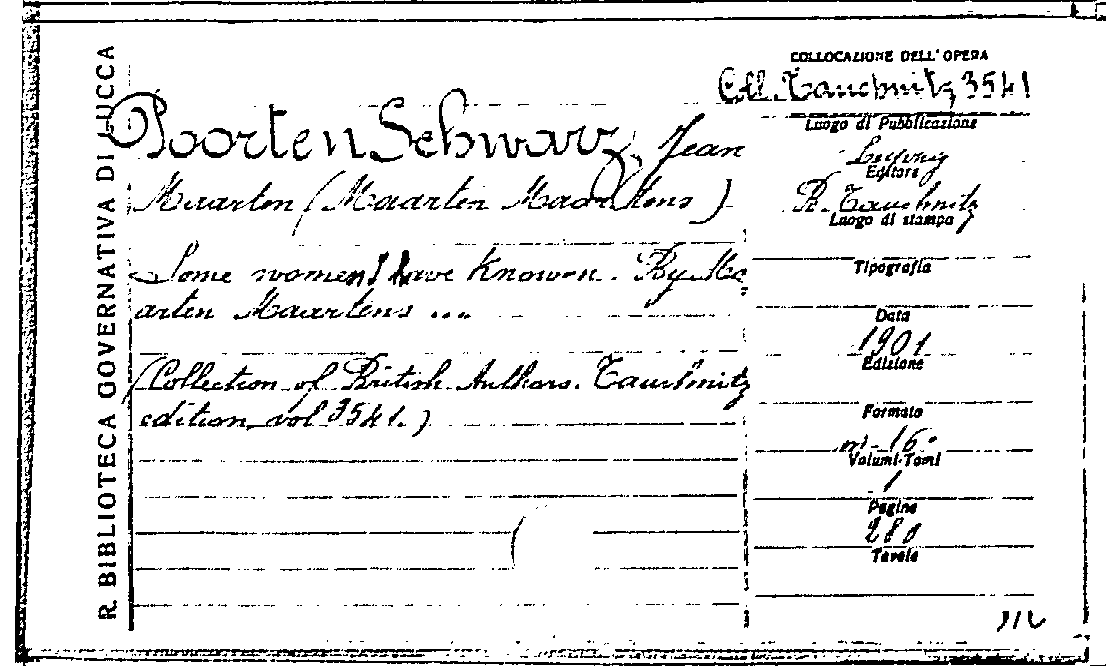 R. BIBLIOTECA GOVERNATIVA DI LUCCA
Poorten Schwarz, Jean
Maarten (Maarten Maartens)
Some women I have Knowon. By Ma
arten Maartens ...
(Collection of British Authors. Tauchnitz
edition vol 3541.)
COLLOCAZIONE DELL'OPERA
Coll. Tauchnitz 3541
Luogo di Pubblicazione
Leipzig
Editore
B. Tauchnitz
Luogo di stampa
Tipografia
Data
1901
Edizione
Formato
in-16°
Volumi-Tomi
1
Pagine
280
Tavole